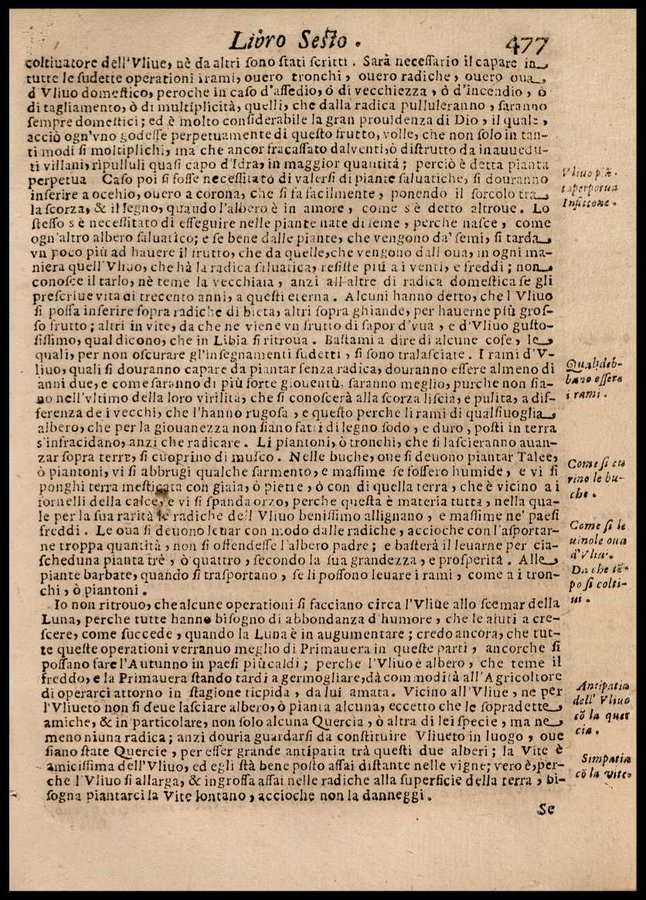 Libro Sesto. 477
coltiuatore dell'Vliue, nè da altri sono stati scritti. Sarà necessario il capare in
tutte le sudette operationi i rami, ouero tronchi, ouero radiche, ouero oua
d'Vliuo domestico, peroche in caso d'assedio, ó di vecchiezza, ò d'incendio, ò
di tagliamento, ò di multiplicità, quelli, che dalla radica pulluleranno, saranno
sempre domestici; ed è molto considerabile la gran prouidenza di Dio, il quale,
acciò ogn'vno godesse perpetuamente di questo frutto, volle, che non solo in tan-
ti modi si moltiplichi, ma che ancor fracassato dalventi, ò distrutto da inauuedu-
ti villani, ripulluli quasi capo d'Idra, in maggior quantità; perciò è detta pianta
perpetua Caso poi si fosse necessitato di valersi di piante saluatiche, si douranno
inserire a ocehio, ouero a corona, che si fa facilmente, ponendo il sorcolo tra
la scorza, & il legno, quaudo l'albero è in amore, come s'è detto altroue. Lo
stesso s'è necessitato di esseguire nelle piante nate di seme, perche nasce, come
ogn'altro albero saluatico; e se bene dalle piante, che vengono da' semi, si tarda
vn poco più ad hauere il frutto, che da quelle, che vengono dall oua, in ogni ma-
niera quell'Vliuo, che hà la radica saluatica, resiste più a i venti, e freddi; non
conosce il tarlo, nè teme la vecchiaia, anzi all'altre di radica domestica se gli
prescriue vita di trecento anni, a questi eterna. Alcuni hanno detto, che l'Vliuo
si possa inserire sopra radiche di bieta, altri sopra ghiande, per hauerne più gros-
so frutto; altri in vite, da che ne viene vn frutto di sapor d'vua, e d'Vliuo gusto-
sissimo, qual dicono, che in Libia si ritroua. Bastami a dire di alcune cose, le
quali, per non oscurare gl'insegnamenti sudetti, si sono tralasciate. I rami d'V-
liuo, quali si douranno capare da piantar senza radica, douranno essere almeno di
anni due, e come saranno di più forte giouentù, saranno meglio, purche non sia-
no nell'vltimo della loro virilità, che si conoscerà alla scorza liscia, e pulita, a dif-
ferenza de i vecchi, che l'hanno rugosa, e questo perche li rami di qualsiuoglia
albero, che per la giouanezza non siano fatti di legno sodo, e duro, posti in terra
s'infracidano, anzi che radicare. Li piantoni, ò tronchi, che si lascieranno auan-
zar sopra terra, si cuoprino di musco. Nelle buche, oue si deuono piantar Talee,
ò piantoni, vi si abbrugi qualche sarmento, e massime se fossero humide, e vi si
ponghi terra mesticata con giaia, ò pietre, ò con di quella terra, che è vicino a i
fornelli della calce, e vi si spanda orzo, perche questa è materia tutta, nella qua-
le per la sua rarità le radiche dell'Vliuo benissimo allignano, e massime ne' paesi
freddi. Le oua si deuono leuar con modo dalle radiche, accioche con l'asportar-
ne troppa quantità, non si offendesse l'albero padre; e basterà il leuarne per cia-
scheduna pianta trè, ò quattro, secondo la sua grandezza, e prosperità. Alle
piante barbate, quando si trasportano, se li possono leuare i rami, come a i tron-
chi, ò piantoni.
Io non ritrouo, che alcune operationi si facciano circa l'Vliue allo scemar della
Luna, perche tutte hanno bisogno di abbondanza d'humore, che le aiuti a cre-
scere, come succede, quando la Luna è in augumentare; credo ancora, che tut-
te queste operationi verranuo meglio di Primauera in queste parti, ancorche si
possano fare l'Autunno in paesi più caldi; perche l'Vliuo è albero, che teme il
freddo, e la Primauera stando tardi a germogliare, dà commodità all'Agricoltore
di operarci attorno in stagione tiepida, da lui amata. Vicino all'Vliue, ne per
l'Vliueto non si deue lasciare albero, ò pianta alcuna, eccetto che le sopradette
amiche, & in particolare, non solo alcuna Quercia, ò altra di lei specie, ma ne
meno niuna radica; anzi douria guardarsi da constituire Vliueto in luogo, oue
siano state Quercie, per esser grande antipatia trà questi due alberi; la Vite è
amicissima dell'Vliuo, ed egli stà bene posto assai distante nelle vigne; vero è, per-
che l'Vliuo si allarga, & ingrossa assai nelle radiche alla superficie della terra, bi-
sogna piantarci la Vite lontano, accioche non la danneggi.
Se
Vliuo piã-
ta perpetua
Infitione.
Quali deb-
bano essere
i rami.
Come si cu
rino le bu-
che.
Come si le
uino le oua
d'Vliuo.
Da che tẽ-
po si colti-
ui.
Antipatia
dell'Vliuo
cõ la quer
cia.
Simpatia
cõ la vite.